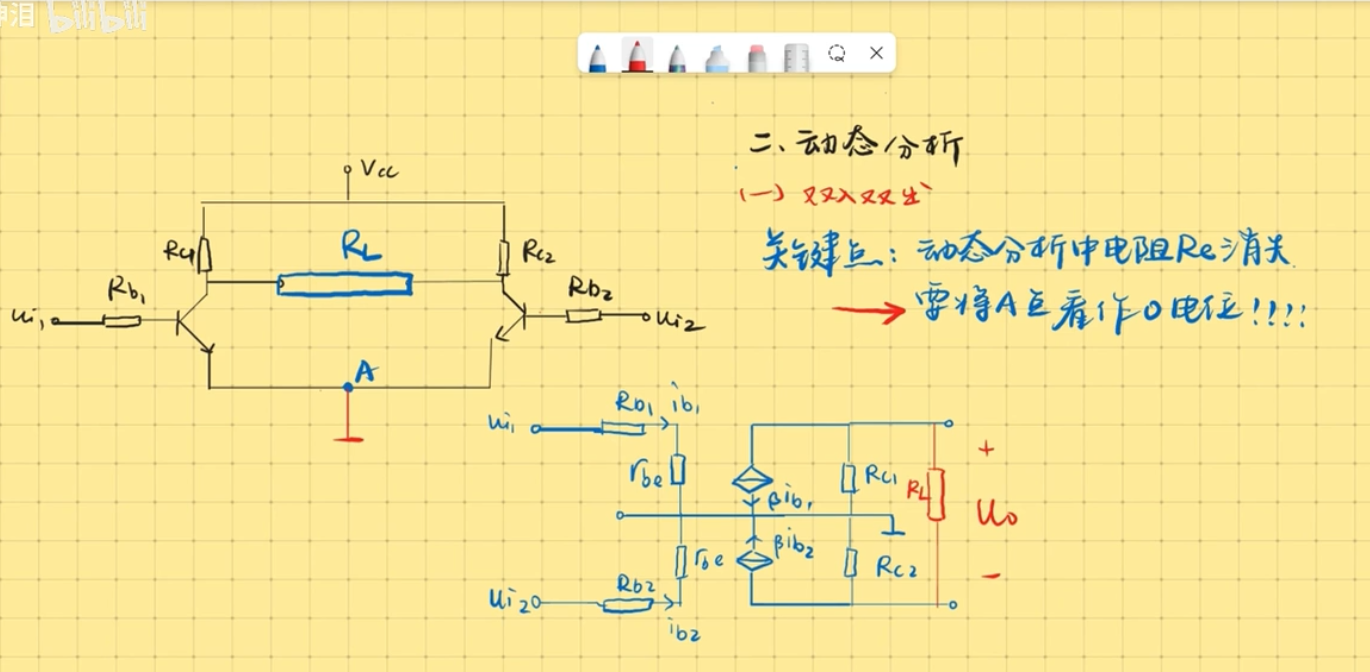 泪 bilibili
二、动态分析
(一) 双入双出
关键点：动态分析中电阻Re消失
要将A点看作0电位!!!!
Vcc
Rc1
RL
Rc2
Rb1
Rb2
ui1
ui2
A
ui1
Rb1
ib1
rbe
βib1
Rc1
RL
+
uo
βib2
rbe
Rc2
-
ui2
Rb2
ib2